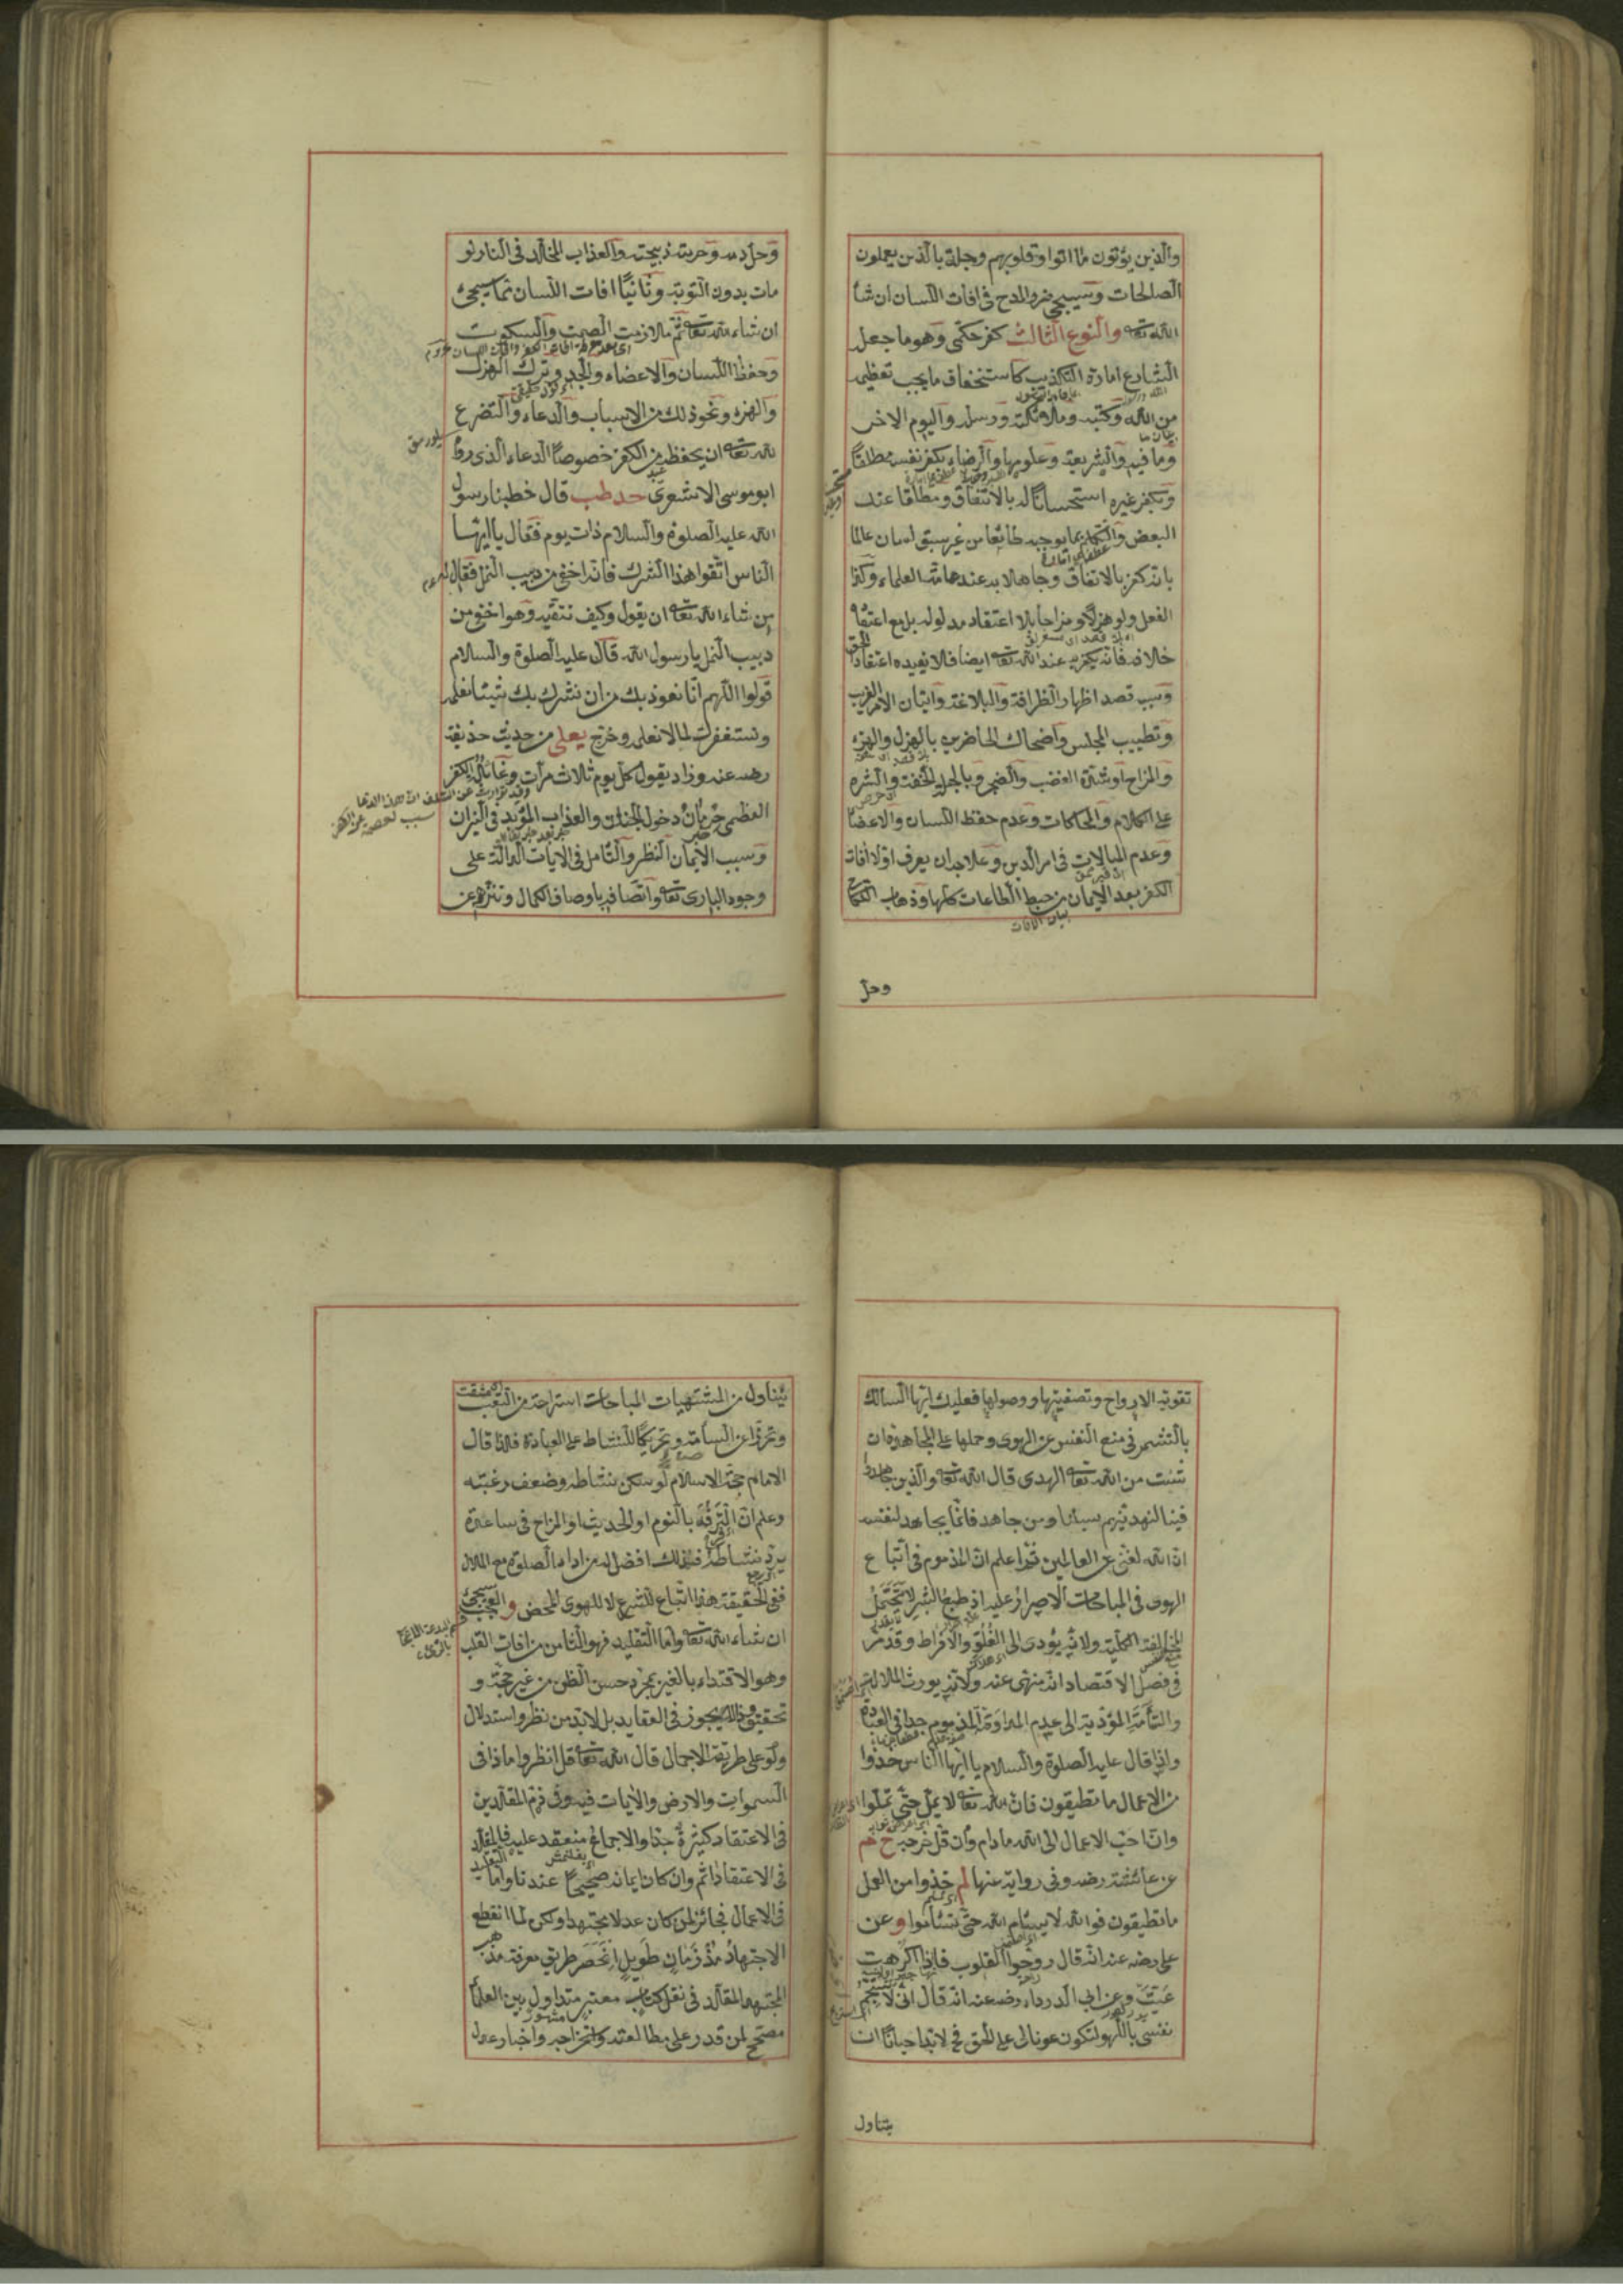 والذين يؤتون ما اتوا وقلوبهم وجلة بالذين يعملون
الصالحات وسيجئ ضر والمدح فى افات اللسان ان شا
الله تعا والنوع الثالث كفر حكمى وهو ما جعل
الشارع امارة التكذيب كاستخفاف ما يجب تعظيمه
من الله وكتبه وملائكته ورسله واليوم الاخر
وما فيه والشريعة وعلومها والرضاء بكفر نفسه مطلقا
وبكفر غيره استحسانا له بالاتفاق ومطلقا عند
البعض والتكلم بما يوجبه طائعا من غير سبق لسان عالما
بانه كفر بالاتفاق وجاهلا به عند عامة العلماء وكذا
الفعل ولو هزلا ومزاحا بلا اعتقاد مدلوله بل مع اعتقا
خلافه فانه يكفر به عند الله تعا ايضا فلا يفيده اعتقاد الحق
وسببه قصد اظهار الظرافة والبلاغة واتيان الامر الغريب
وتطييب المجلس واضحاك الحاضرين بالهزل والهزء
والمزاح او شدة الغضب والضجر وبالجملة الخفة والشره
على الكلام والمحاكات وعدم حفظ اللسان والاعضا
وعدم المبالات فى امر الدين وعلاجه ان يعرف اولا افات
الكفر بعد الايمان من حبط الطاعات كلها وذهاب النكاح
بيان الافات
وحل
وحل دمه وحرمة ذبيحته والعذاب المخلد فى النار لو
مات بدون التوبة وثانيا افات اللسان مما سيجئ
ان شاء الله تعا ثم ملازمة الصمت والسكوت
وحفظ اللسان والاعضاء والجد وترك الهزل
والهزء ونحو ذلك من الاسباب والدعاء والتضرع
لله تعا ان يحفظه من الكفر خصوصا الدعاء الذى روا
ابو موسى الاشعرى حد طب قال خطبنا رسول
الله عليه الصلوة والسلام ذات يوم فقال يا ايها
الناس اتقوا هذا الشرك فانه اخفى من دبيب النمل فقال له
من شاء الله تعا ان يقول وكيف نتقيه وهو اخفى من
دبيب النمل يا رسول الله قال عليه الصلوة والسلام
قولوا اللهم انا نعوذ بك من ان نشرك بك شيئا نعلمه
ونستغفرك لما لا نعلمه وخرج يعلى من حديث حذيفة
رضه عنه وزاد يقول كل يوم ثلاث مرات وغائلة الكفر
العظمى حرمان دخول الجنان والعذاب المؤبد فى النيران
وسبب الايمان النظر والتامل فى الايات الدالة على
وجود البارى تعا واتصافه باوصاف الكمال وتنزهه عن
تقوية الارواح وتصفيتها ووصولها فعليك ايها السالك
بالتشمر فى منع النفس عن الهوى وحملها على المجاهدة ان
شئت من الله تعا الهدى قال الله تعا والذين جاهدوا
فينا لنهدينهم سبلنا ومن جاهد فانما يجاهد لنفسه
ان الله لغنى عن العالمين ثم اعلم ان المذموم فى اتباع
الهوى فى المباحات الاصرار عليه اذ طبع البشر لا تحتمل
المخالفة الكلية ولانه يؤدى الى الغلو والافراط وقد مر
فى فصل الاقتصاد انه منهى عنه ولانه يورث الملالة
والسامة المؤدية الى عدم المداومة المذموم جدا فى العبادة
واذا قال عليه الصلوة والسلام يا ايها الناس خذوا
من الاعمال ما تطيقون فان الله تعا لا يمل حتى تملوا
وان احب الاعمال الى الله ما دام وان قل خرجه خ م
عن عائشة رضه وفى رواية عنها لم خذوا من العمل
ما تطيقون فو الله لا يسئم الله حتى تسئموا وعن
على رضه عنه انه قال روحوا القلوب فاذا اكرهت
عميت وعن ابى الدرداء رضه عنه انه قال انى لاستجم
نفسى باللهو لتكون عونا لى على الحق فح لا بد احيانا ان
يتناول
يتناول من المشتهيات المباحات استراحة من التعب
وتحرزا عن السامة وتحريكا للنشاط على العبادة فلذا قال
الامام حجة الاسلام لو سكن نشاطه وضعف رغبته
وعلم ان الترفه بالنوم او الحديث او المزاح فى ساعة
يرد نشاطه فذلك افضل له من اداء الصلوة مع الملال
ففى الحقيقة هذا اتباع للشرع لا للهوى المحض والعجب سيجئ
ان شاء الله تعا واما التقليد فهو الثامن من افات القلب
وهو الاقتداء بالغير بمجرد حسن الظن من غير حجة و
تحقيق وذا لا يجوز فى العقايد بل لا بد من نظر واستدلال
ولو على طريقة الاجمال قال الله تعا قل انظروا ماذا فى
السموات والارض والايات فيه وفى ذم المقلدين
فى الاعتقاد كثيرة جدا والاجماع منعقد عليه فالمقلد
فى الاعتقاد اثم وان كان ايمانه صحيحا عندنا واما التقليد
فى الاعمال فجائز لمن كان عدلا مجتهدا ولكن لما انقطع
الاجتهاد مذ زمان طويل انحصر طريق معرفة مذهب
المجتهد المقلد فى نقل كتاب معتبر متداول بين العلما
مصحح لمن قدر على مطالعته واستخراجه واخبار عدل